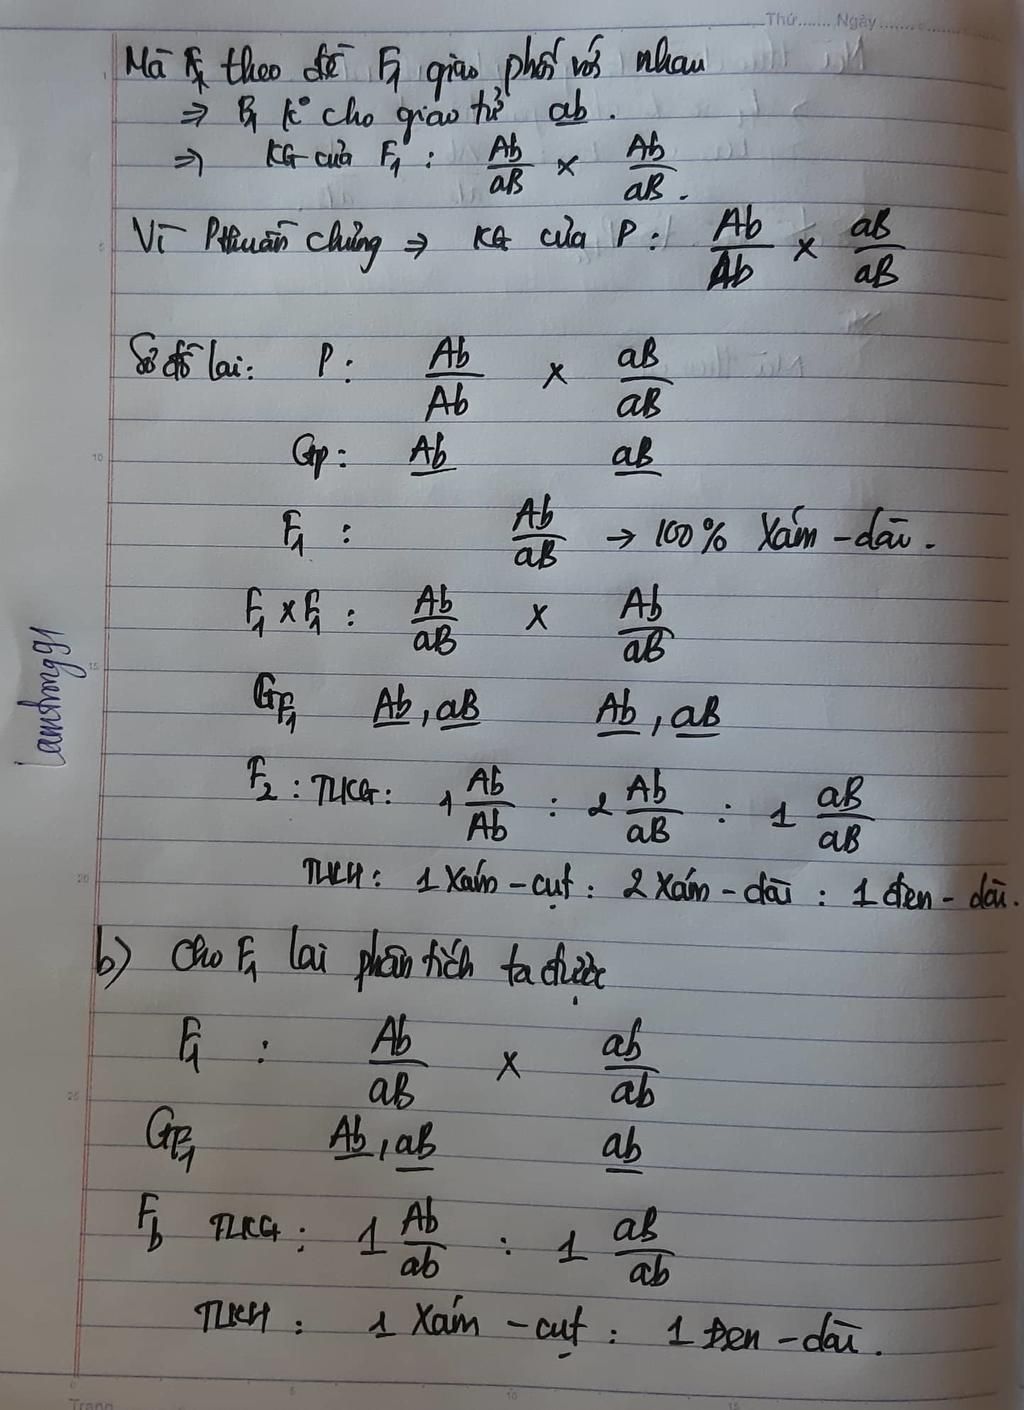 Thứ....... Ngày..........
Mà F1 theo đề F1 giao phối với nhau
⇒ F1 k° cho giao tử ab.
⇒ KG của F1 : Ab/aB × Ab/aB.
Vì P thuần chủng ⇒ KG của P : Ab/Ab × aB/aB
Sơ đồ lai: P : Ab/Ab × aB/aB
Gp : Ab aB
F1 : Ab/aB → 100% Xám - dài.
F1 × F1 : Ab/aB × Ab/aB
GF1 Ab, aB Ab, aB
F2 : TLKG : 1 Ab/Ab : 2 Ab/aB : 1 aB/aB
TLKH : 1 Xám - cụt : 2 Xám - dài : 1 đen - dài.
b) Cho F1 lai phân tích ta được
F1 : Ab/aB × ab/ab
GF1 Ab, aB ab
Fb TLKG : 1 Ab/ab : 1 aB/ab
TLKH : 1 Xám - cụt : 1 Đen - dài.
Trang